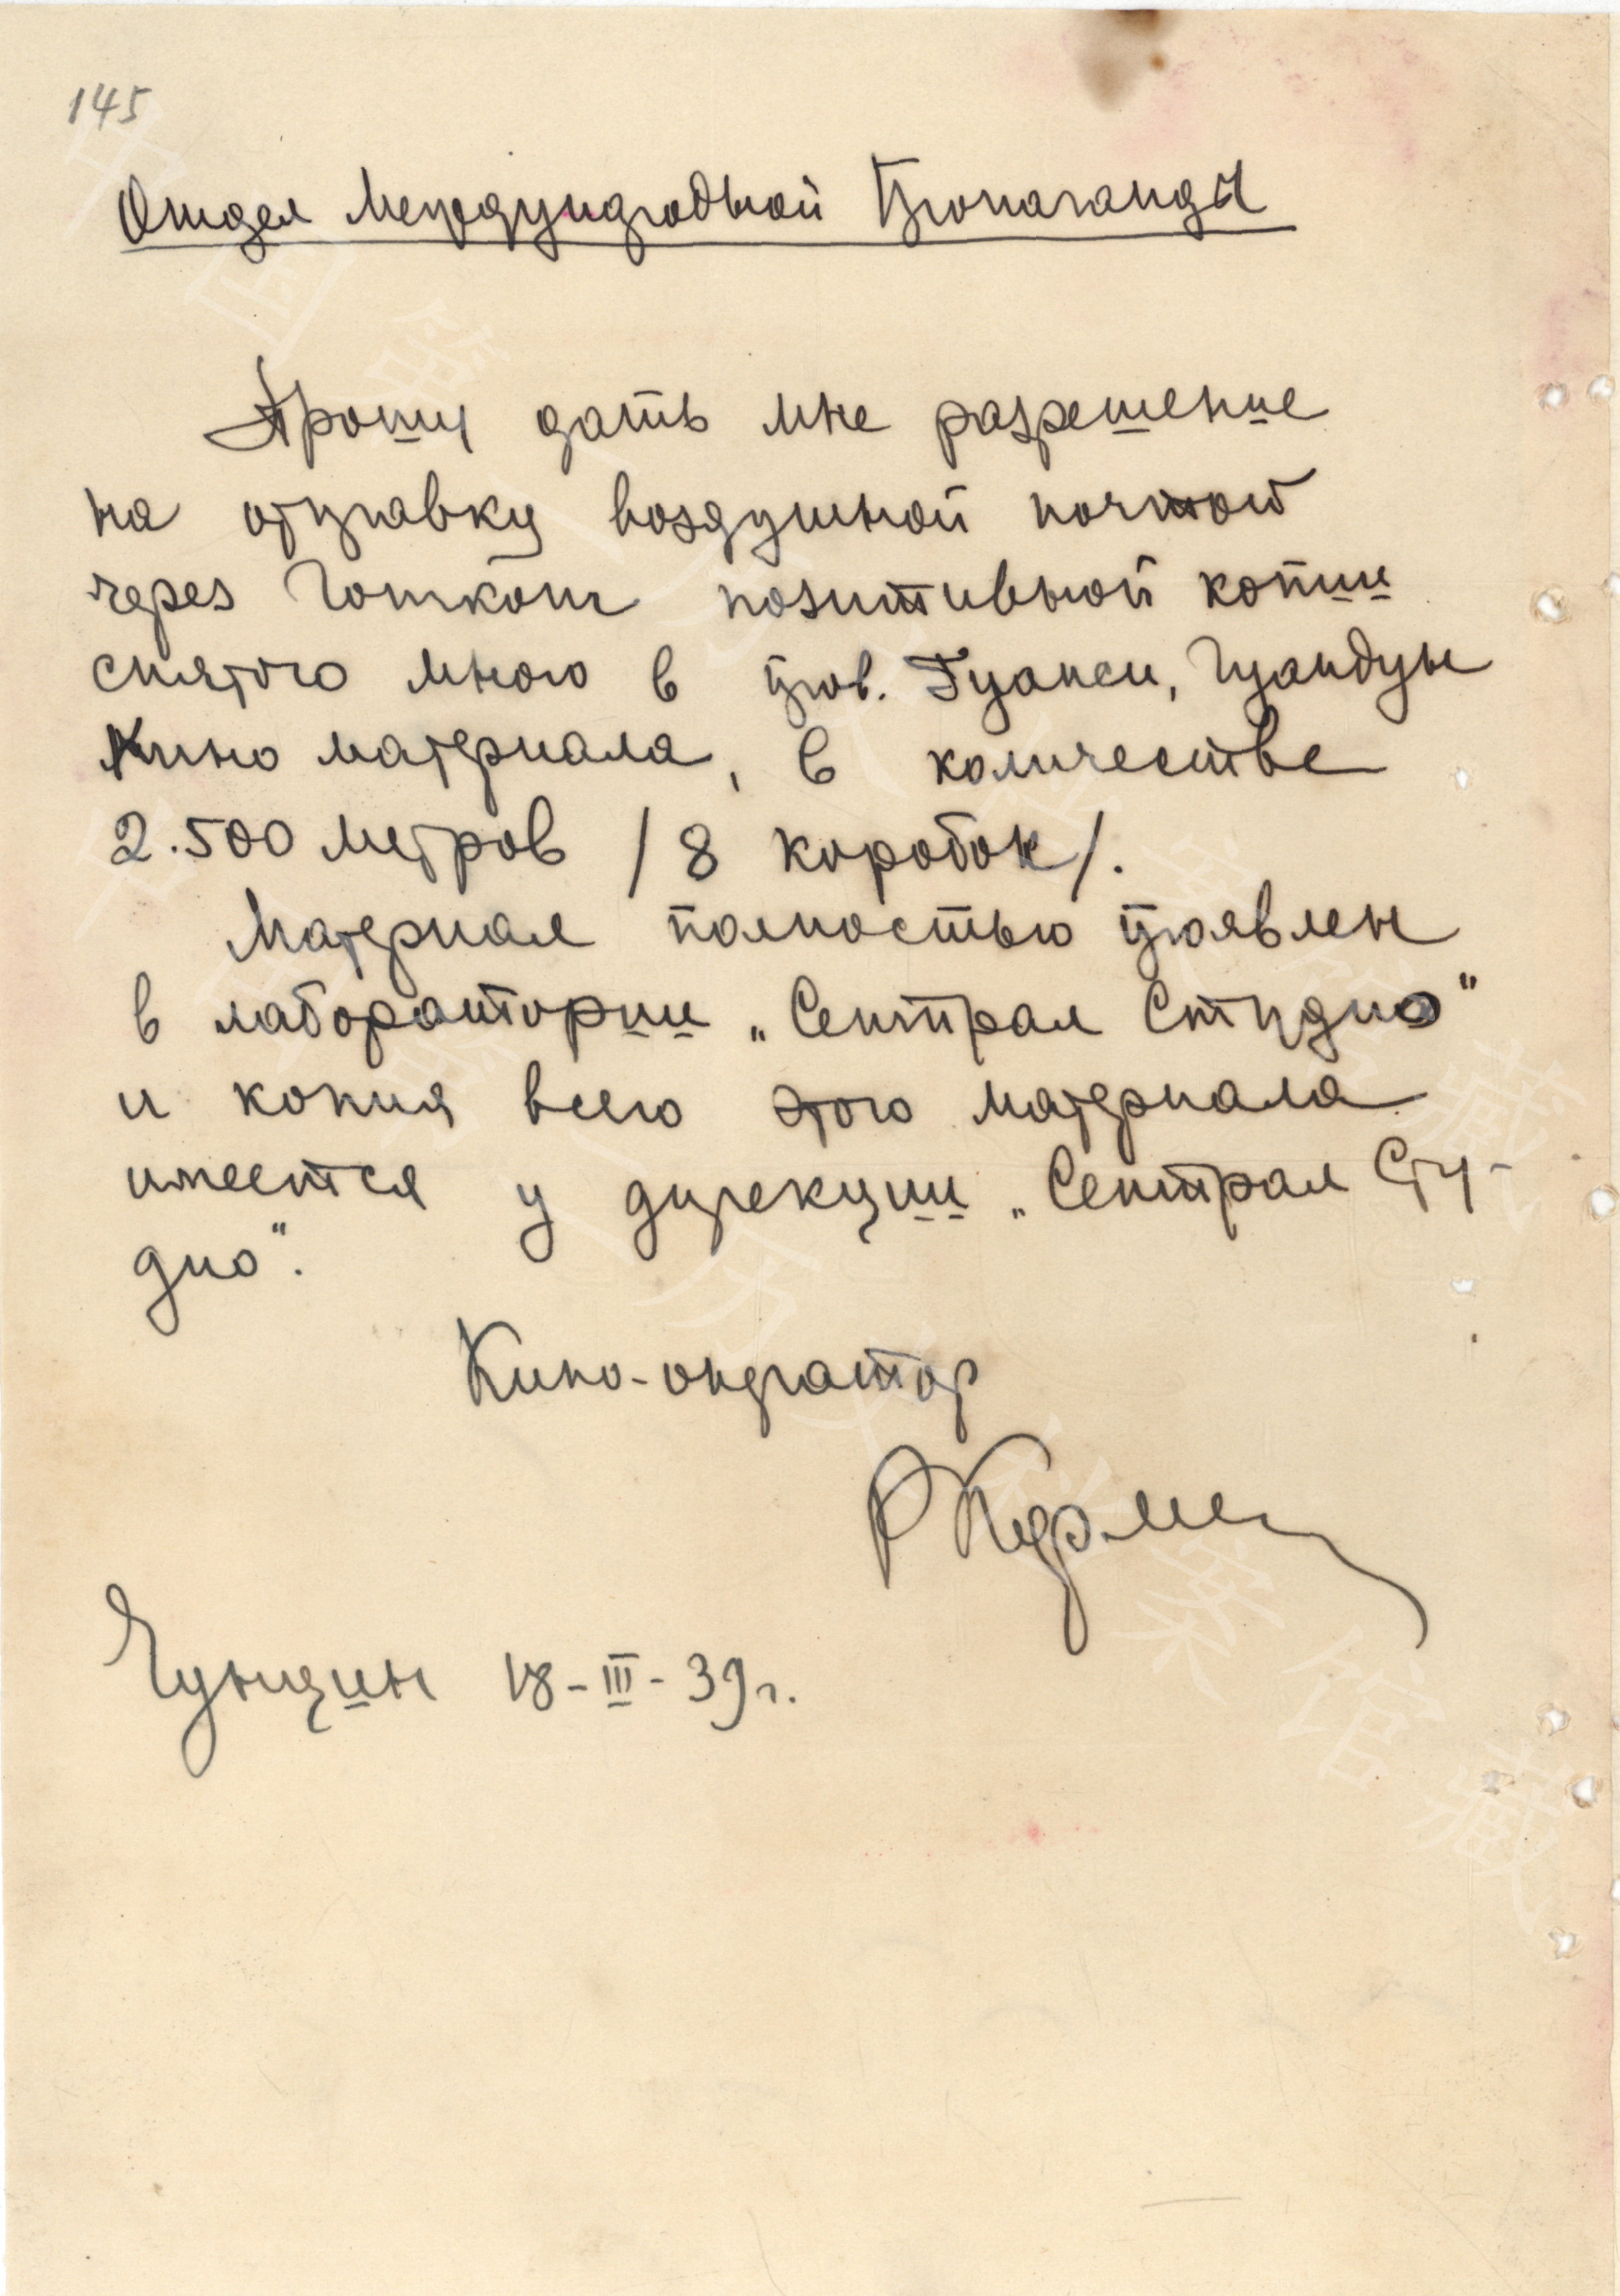 145
Отдел Международной Пропаганды
Прошу дать мне разрешение
на отправку воздушной почтой
через Гонконг позитивной копии
снятого мною в пров. Гуанси, Гуандун
Кино материала, в количестве
2.500 метров /8 коробок/.
Материал полностью проявлен
в лаборатории „Сентрал Студио"
и копия всего этого материала
имеется у дирекции „Сентрал Сту-
дио".
Кино-оператор
Р Кармен
Чунцин 18-III-39г.